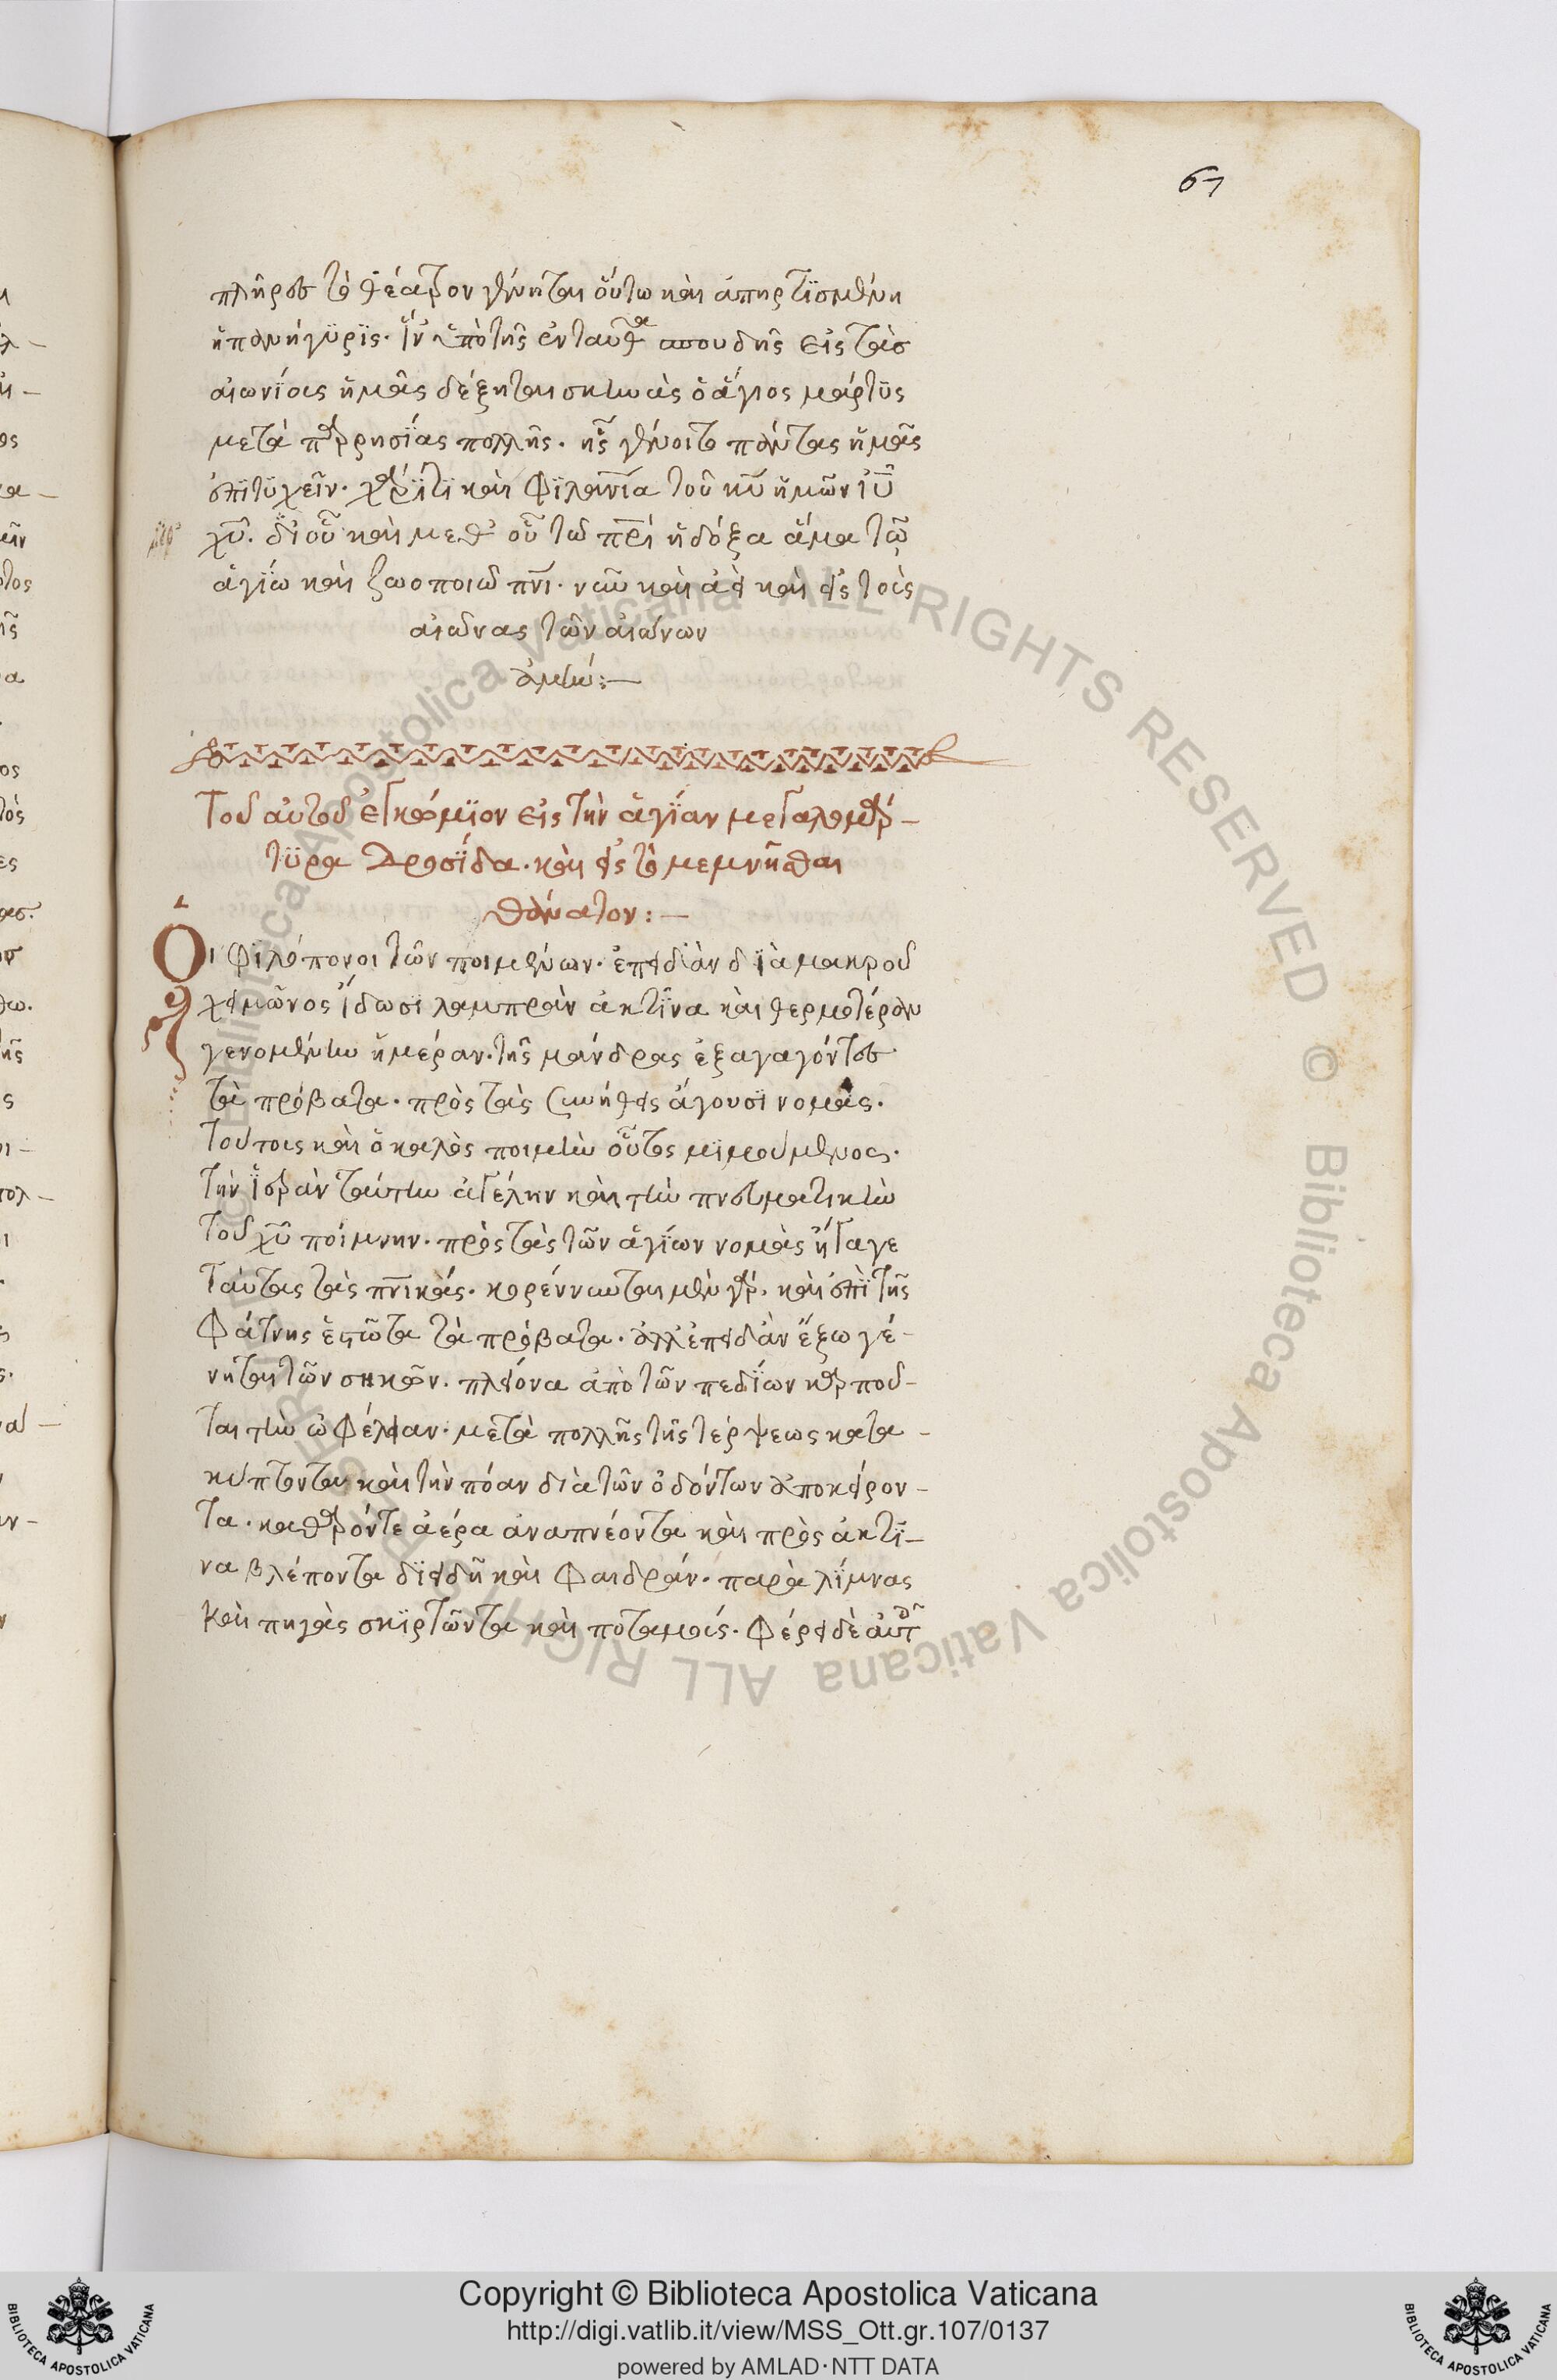 67
πλῆρες τὸ θέατρον γένηται οὕτω καὶ ἀπηρτϊσμένη
ἡ πανήγϋρϊς. ἵν' ἀπὸ τῆς ἐνταῦθα σπουδῆς εἰς τὰσ
αἰωνίοις ἡμᾶς δέξηται σκηνὰς ὁ ἅγιος μάρτϋς
μετὰ παρρησΐας πολλῆς. ἧς γένοιτο πάντας ἡμᾶς
ἐπϊτϋχεῖν. χάρϊτϊ καὶ φϊλανΐα τοῦ κυ ἡμῶν ιυ
χυ. δι' οὗ καὶ μεθ' οὗ τῶ πρι ἡ δόξα ἅμα τῶ
ἁγΐω καὶ ζωοποιῶ πνι. νῦν καὶ ἀεὶ καὶ εἰς τοὺς
αἰῶνας τῶν αἰώνων
ἀμήν:—
Τοῦ αὐτοῦ ἐγκώμϊον εἰς τὴν ἁγΐαν μεγαλομάρ-
τϋρα Δροσΐδα. καὶ εἰς τὸ μεμνῆσθαι
θάνατον:—
Οἱ φϊλόπονοι τῶν ποιμένων. ἐπειδὰν δϊὰ μακροῦ
χειμῶνος ἴδωσϊ λαμπρὰν ἀκτῖνα καὶ θερμοτέραν
γενομένην ἡμέραν. τῆς μάνδρας ἐξαγαγόντες
τὰ πρόβατα. πρὸς τὰς συνήθεις ἄγουσϊ νομάς.
τούτοις καὶ ὁ καλὸς ποιμὴν οὗτος μϊμούμενος.
τὴν ἱερὰν ταύτην ἀγέλην καὶ τὴν πνευματικὴν
τοῦ χυ ποίμνην. πρὸς τὰς τῶν ἁγΐων νομὰς ἤγαγε
ταύτας τὰς πνικάς. κορέννυνται μὲν γάρ. καὶ ἐπϊ τῆς
φάτνης ἑστῶτα τὰ πρόβατα. ἀλλ' ἐπειδὰν ἔξω γέ-
νηται τῶν σηκῶν. πλείονα ἀπὸ τῶν πεδΐων καρποῦ-
ται τὴν ὠφέλειαν. μετὰ πολλῆς τῆς τέρψεως κατα-
κύπτοντα καὶ τὴν πόαν διὰ τῶν ὀδόντων ἀποκείρον-
τα. καθαρόν τε ἀέρα ἀναπνέοντα καὶ πρὸς ἀκτῖ-
να βλέποντα δϊειδῆ καὶ φαιδράν. παρὰ λΐμνας
καὶ πηγὰς σκϊρτῶντα καὶ ποταμούς. φέρει δὲ αὐτοῖς
Copyright © Biblioteca Apostolica Vaticana
http://digi.vatlib.it/view/MSS_Ott.gr.107/0137
powered by AMLAD·NTT DATA